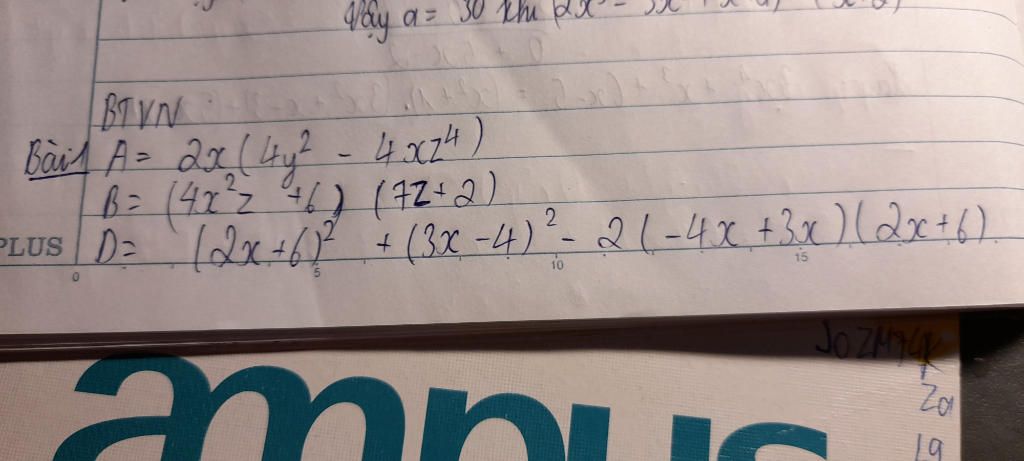 Vậy a = 30 khi
BTVN
Bài 1 A = 2x(4y² - 4xz⁴)
B = (4x²z + 6) (7z + 2)
D = (2x + 6)² + (3x - 4)² - 2(-4x + 3x)(2x + 6)
PLUS
0 5 10 15
ampus